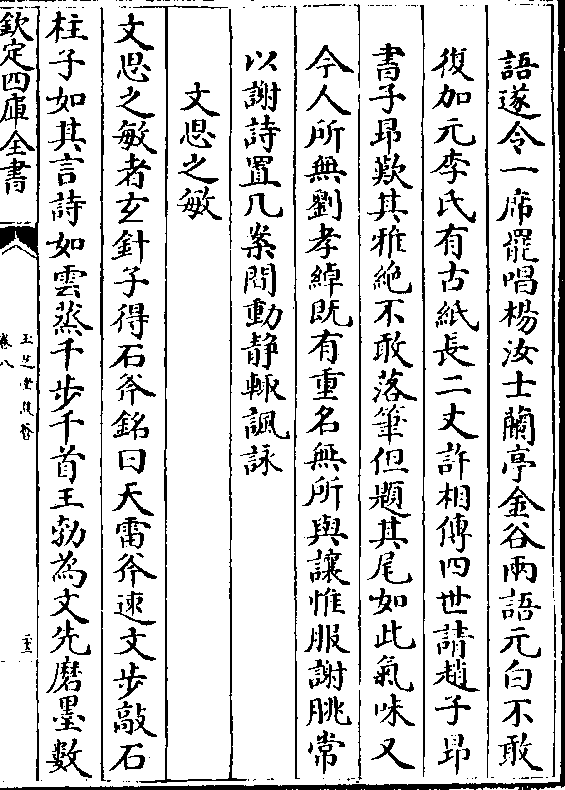 語遂令一席罷唱楊汝士蘭亭金谷兩語元白不敢
復加元李氏有古紙長二丈許相傳四世請趙子昂
書子昂歎其雅絶不敢落筆但題其尾如此氣味又
今人所無劉孝綽既有重名無所與讓惟服謝朓常
以謝詩置几案間動靜輙諷詠
文思之敏
文思之敏者玄針子得石斧銘曰天雷斧速文步敲石
柱子如其言詩如雲蒸千步千首王勃為文先磨墨數
欽定四庫全書
卷八